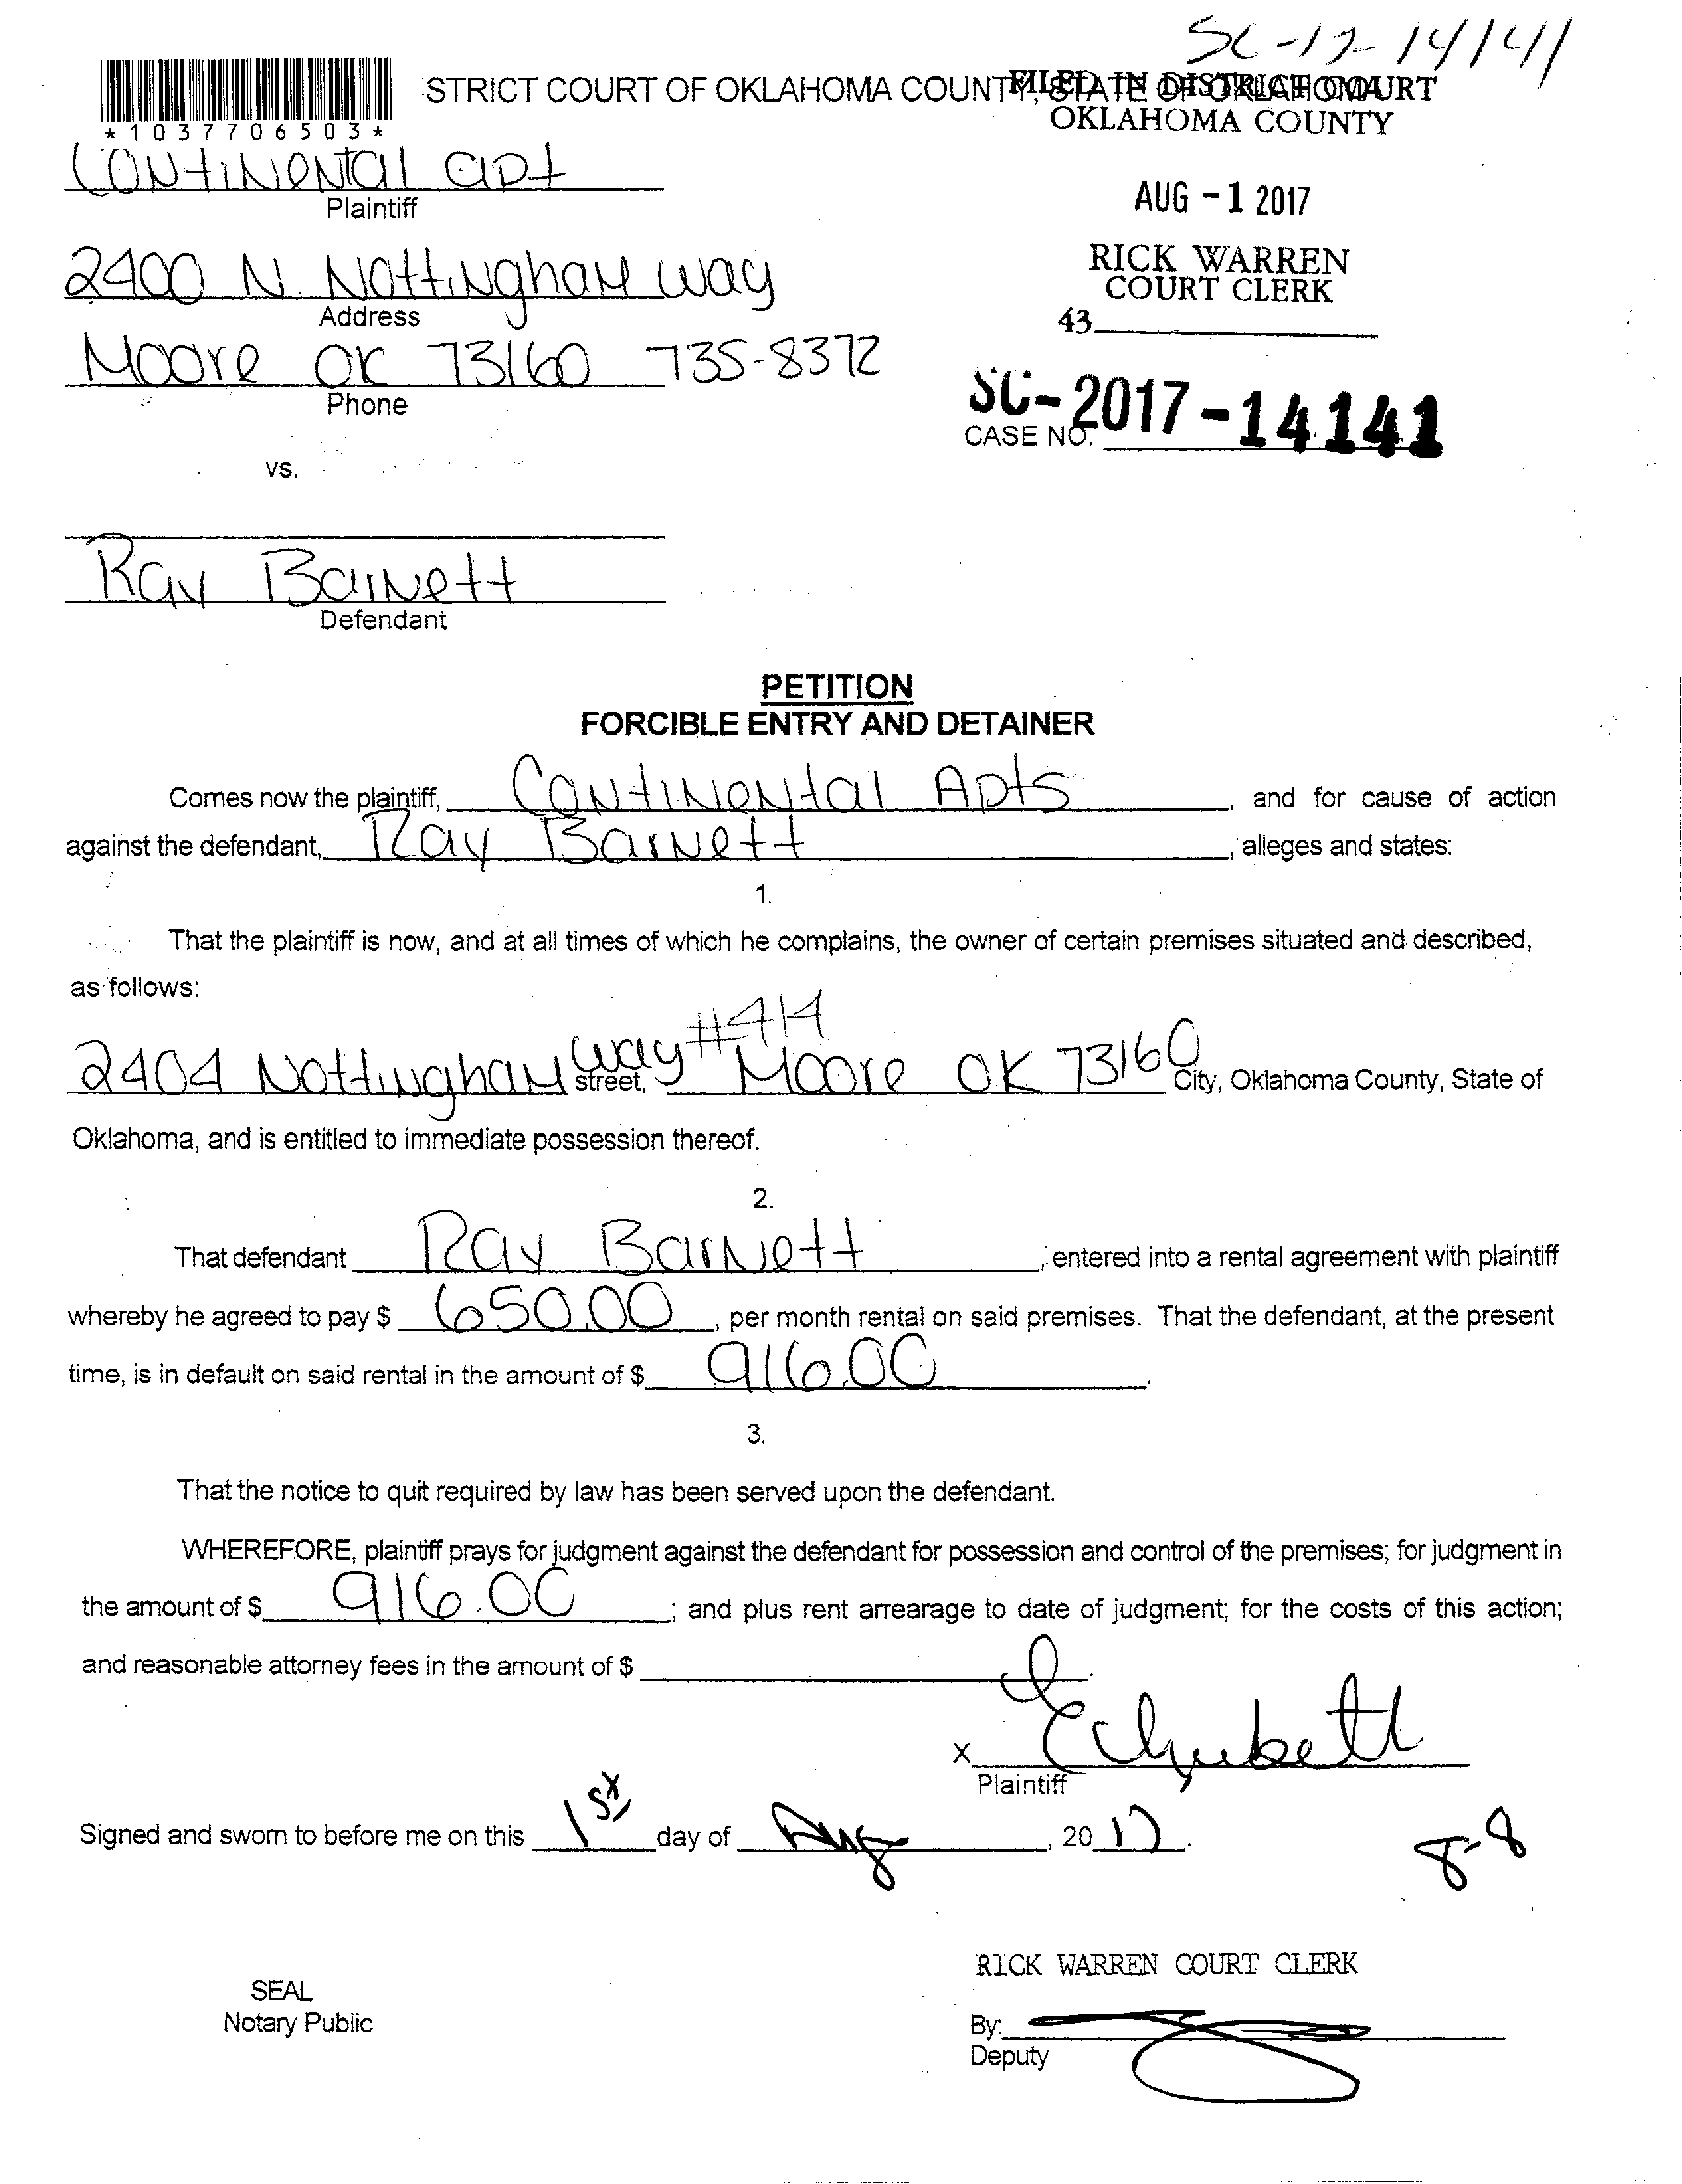 SC-17-14141
STRICT COURT OF OKLAHOMA COUNTY, STATE OF OKLAHOMA
FILED IN DISTRICT COURT
OKLAHOMA COUNTY
*1037706503*
Continental apt
Plaintiff
AUG -1 2017
2400 N. Nottingham way
Address
RICK WARREN
COURT CLERK
43
Moore OK 73160 735-8372
Phone
SC-2017-14141
CASE NO.
vs.
Ray Barnett
Defendant
PETITION
FORCIBLE ENTRY AND DETAINER
Comes now the plaintiff, Continental Apts, and for cause of action
against the defendant, Ray Barnett, alleges and states:
1.
That the plaintiff is now, and at all times of which he complains, the owner of certain premises situated and described,
as follows:
2404 Nottingham way #414 street, Moore OK 73160 City, Oklahoma County, State of
Oklahoma, and is entitled to immediate possession thereof.
2.
That defendant Ray Barnett; entered into a rental agreement with plaintiff
whereby he agreed to pay $ 650.00, per month rental on said premises. That the defendant, at the present
time, is in default on said rental in the amount of $ 916.00.
3.
That the notice to quit required by law has been served upon the defendant.
WHEREFORE, plaintiff prays for judgment against the defendant for possession and control of the premises; for judgment in
the amount of $ 916.00; and plus rent arrearage to date of judgment; for the costs of this action;
and reasonable attorney fees in the amount of $
X
Plaintiff
Signed and sworn to before me on this 1st day of Aug, 20 17.
8-8
RICK WARREN COURT CLERK
SEAL
Notary Public
By:
Deputy